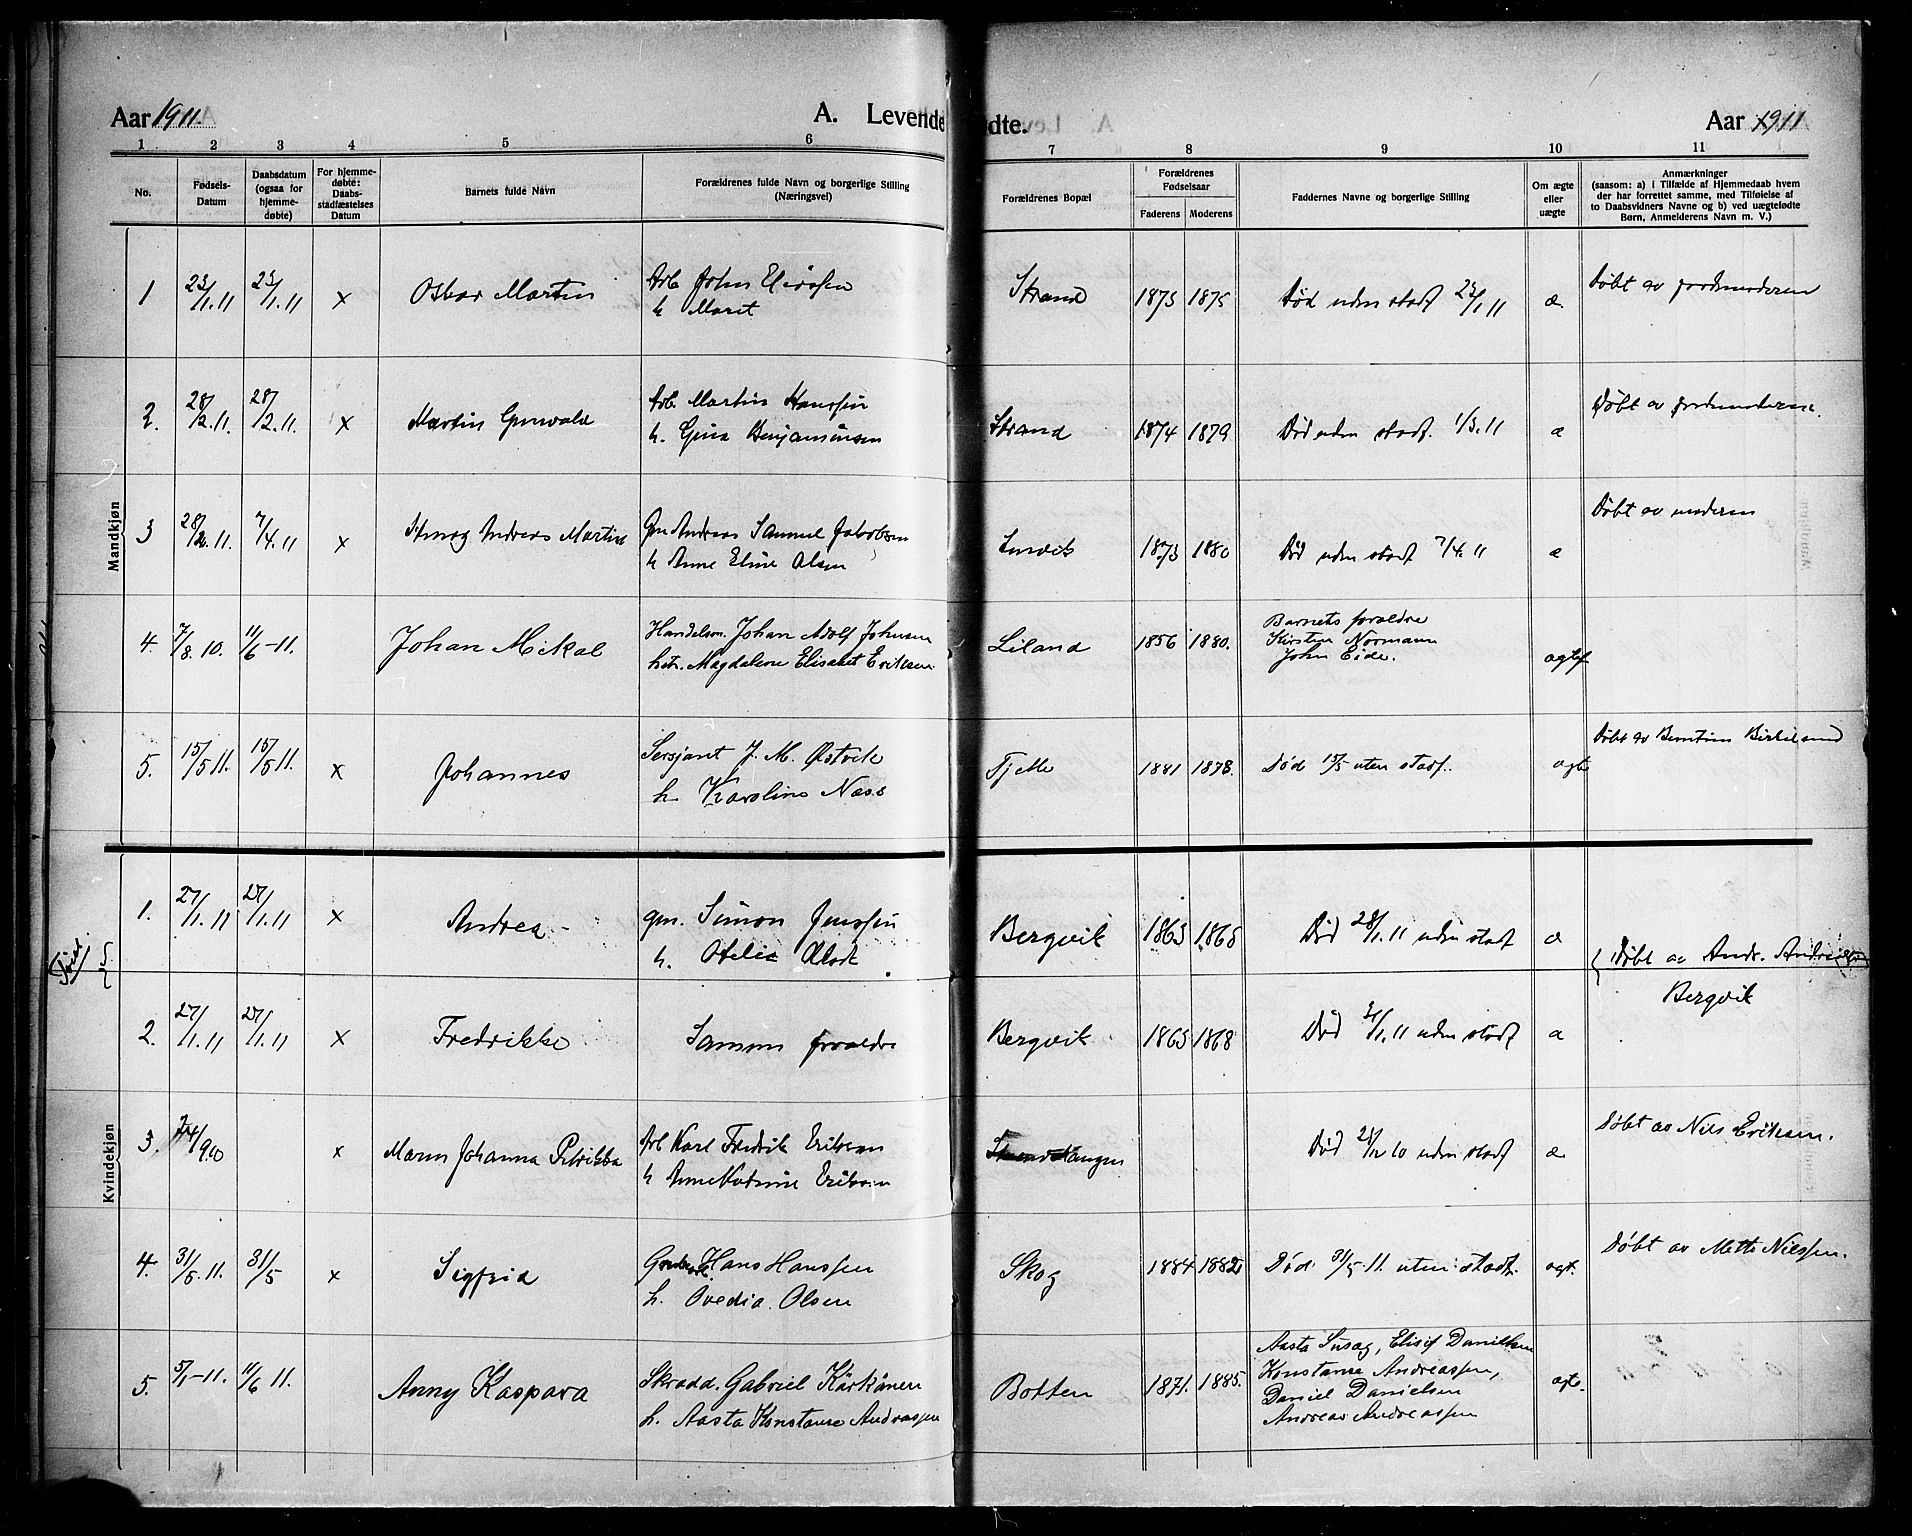 Aar 1911.
A. Levende
dte.
Aar 1911
1 2 3 4 5 6 7 8 9 10 11
No.
Fødsels-
Datum
Daabsdatum
(ogsaa for
hjemme-
døbte)
For hjemme-
døbte:
Daabs-
stadfæstelses
Datum
Barnets fulde Navn
Forældrenes fulde Navn og borgerlige Stilling
(Næringsvei)
Forældrenes Bopæl
Forældrenes
Fødselsaar
Faderens Moderens
Faddernes Navne og borgerlige Stilling
Om ægte
eller
uægte
Anmærkninger
(saasom: a) i Tilfælde af Hjemmedaab hvem
der har forrettet samme, med Tilføielse af
to Daabsvidners Navne og b) ved uægtefødte
Børn, Anmelderens Navn m. V.)
Mandkjøn
1 23/1.11 23/1.11 x Oskar Martin Arb John
h Maret
Strand 1875 1875 Død uden stadf 23/1 11 æ. Døbt av jordmoderen
2. 28/2.11. 28/2.11. x Martin Arb. Martin Hanssen
h. Gina Benjaminsen
Strand 1874 1879 Død uden stadf. 1/3.11 æ Døbt av jordmoderen.
3 28/2.11. 7/4.11 x Andreas Martin Gm Andreas Samuel Jakobsen
h Anne Eline Olsen
1873 1880 Død uden stadf 7/4.11 æ Døbt av moderen
4. 7/8.10. 11/6-11. Johan Mikal Handelsm. Johan Adolf Johnsen
hstr. Magdalene Elisabet Eriksen
Liland 1856 1880. Barnets forældre
Kirsten Normann
John Eide.
agtef
5. 15/5 11. 15/5 11. x Johannes Sersjant J. M. Østvik
h. Karoline Næss
Tjelle 1881 1878. Død 15/5 uten stadf. agt Døbt av
Kvindekjøn
1. 27/1.11 27/1.11 x Andrea gm. Simon Jenssen
h. Otelie
Bergvik 1863 1868 Død 28/1.11 uden stadf æ
Døbt av Andr.
Bergvik
2. 27/1.11 27/1.11 x Fredrikke Samme forældre
Bergvik 1863 1868 Død 31/1.11 uden stadf æ
3. x Maren Johanna Petrikka Arb Karl Fredrik Eriksen
h Anne Katrine Eriksen
Død uden stadf æ Døbt av Nils Eriksen.
4. 31/5.11. 31/5 x Sigfrid Hans Hanssen
h. Ovedia Olsen
Skog 1884 1882 Død 31/5 11. uten stadf. agt. Døbt av Mette Nilssen.
5. 5/1-11. 11/6 11. Anny Kaspara Skradd. Gabriel Kärkänen
h. Aasta Konstanse Andreassen
Botten 1871. 1885. Aasta Susag, Elisif Danielsen
Konstanse Andreassen,
Daniel Danielsen
Andreas Andreassen
agt.